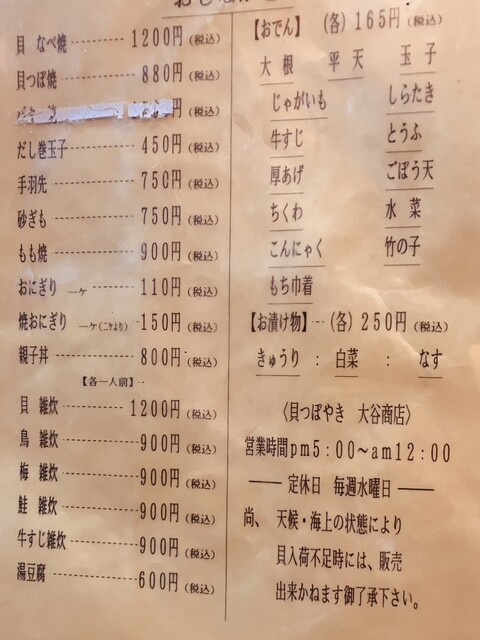 貝 なべ焼 1200円(税込)
貝つぼ焼 880円(税込)
円(税込)
だし巻玉子 450円(税込)
手羽先 750円(税込)
砂ぎも 750円(税込)
もも焼 900円(税込)
おにぎり 一ケ 110円(税込)
焼おにぎり 一ケ(二ケより) 150円(税込)
親子丼 800円(税込)
【各一人前】
貝 雑炊 1200円(税込)
鳥 雑炊 900円(税込)
梅 雑炊 900円(税込)
鮭 雑炊 900円(税込)
牛すじ雑炊 900円(税込)
湯豆腐 600円(税込)
【おでん】 (各)165円(税込)
大根 平天 玉子
じゃがいも しらたき
牛すじ とうふ
厚あげ ごぼう天
ちくわ 水菜
こんにゃく 竹の子
もち巾着
【お漬け物】 (各)250円(税込)
きゅうり : 白菜 : なす
〈貝つぼやき 大谷商店〉
営業時間pm5:00〜am12:00
定休日 毎週水曜日
尚、 天候・海上の状態により
貝入荷不足時には、販売
出来かねます御了承下さい。